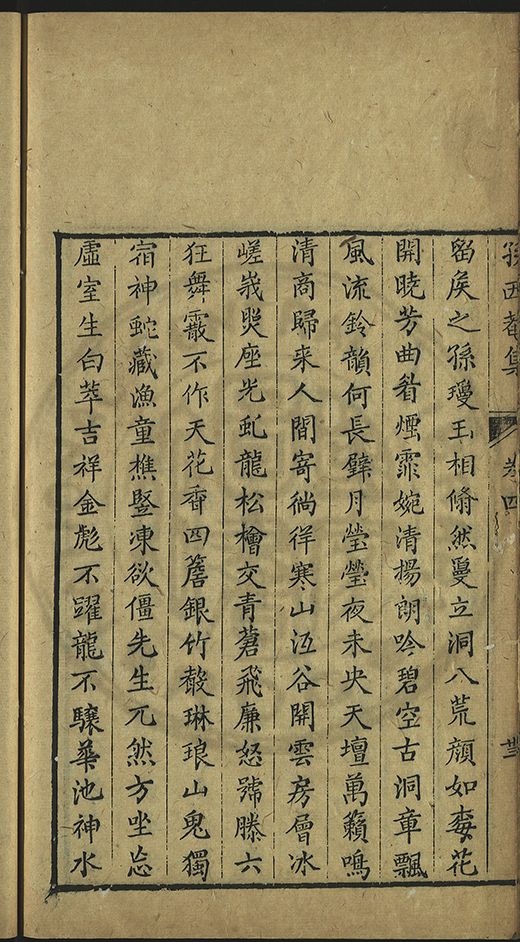 孫西菴集 卷四
留矦之孫瓊玉相翛然敻立洞八荒顏如梅花
開曉芳曲眉煙霏婉清揚朗吟碧空古洞章飄
風流鈴韻何長璧月瑩瑩夜未央天壇萬籟鳴
清商歸来人間寄徜徉寒山沍谷開雲房層冰
嵯峩煛座光虬龍松檜交青蒼飛廉怒號滕六
狂舞霰不作天花香四簷銀竹琳琅山鬼獨
宿神蛇藏漁童樵豎凍欲僵先生兀然方坐忘
虛室生白萃吉祥金彪不躍龍不驤華池神水